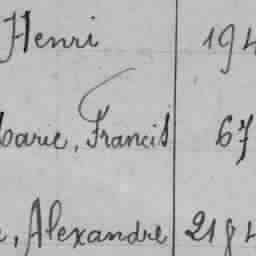 Henri 194
Marie, Francis 67
, Alexandre 2184